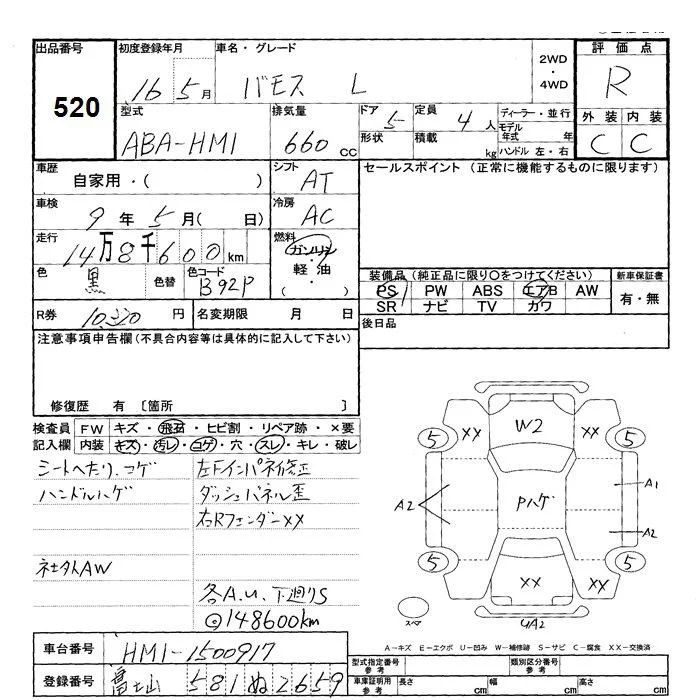 出品番号
520
初度登録年月
16 5月
車名・グレード
バモス L
2WD
・
4WD
評価点
R
型式
ABA-HM1
排気量
660 cc
ドア
5
形状
定員
4人
積載
kg
ディーラー・並行
モデル年式 年
ハンドル 左・右
外装 内装
C C
車歴
自家用・( )
シフト
AT
セールスポイント (正常に機能するものに限ります)
車検
9年5月( 日)
冷房
AC
走行
14万8千600km
燃料
ガソリン
・
軽油
( )
色
黒
色替
色コード
B92P
装備品 (純正品に限り〇をつけてください)
PS PW ABS エアB AW
SR ナビ TV カワ
新車保証書
有・無
R券
10,320円
名変期限 月 日
後日品
注意事項申告欄 (不具合内容等は具体的に記入して下さい)
修復歴 有 〔箇所 〕
検査員 FW キズ・飛石・ヒビ割・リペア跡・×要
記入欄 内装 キズ・汚レ・コゲ・穴・スレ・キレ・破レ
シートへたり、コゲ
ハンドルハゲ
社外AW
左Fインパネ修正
ダッシュパネル歪
右RフェンダーXX
各A.U、下廻りS
◎148600km
5 XX W2 XX 5
A2 Pハゲ A1
A2
5 XX XX XX 5
スペア
UA2
A-キズ E-エクボ U-凹み W-補修跡 S-サビ C-腐食 XX-交換済
車台番号
HM1-1500917
登録番号
富士山 581 ぬ 2659
型式指定番号
参考
類別区分番号
参考
車庫証明用
参考
長さ cm
幅 cm
高さ cm